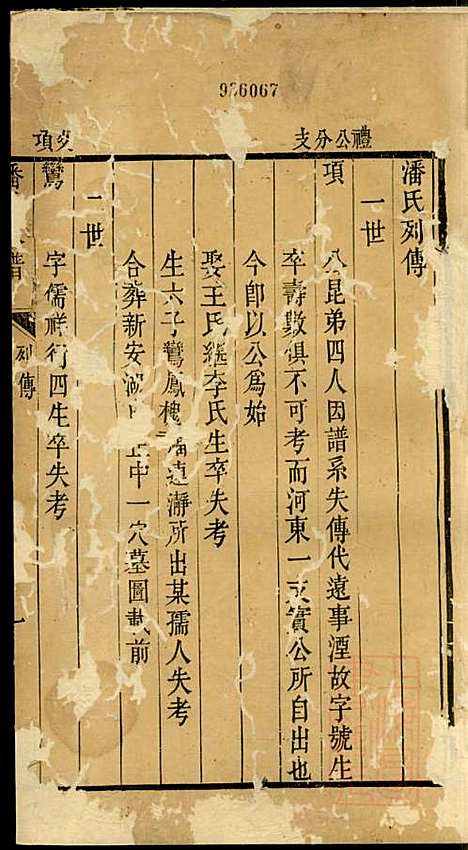 936067
禮公分支
潘氏列傳
一世
項 公昆弟四人因譜系失傳代遠事湮故字號生
卒壽數俱不可考而河東一支實公所自出也
今卽以公爲始
娶王氏繼李氏生卒失考
生六子鸞鳳槐 遠瀞所出某孺人失考
合葬新安 正中一穴墓圖載前
二世
項
鸞 字儒祥行四生卒失考
潘 譜
列傳